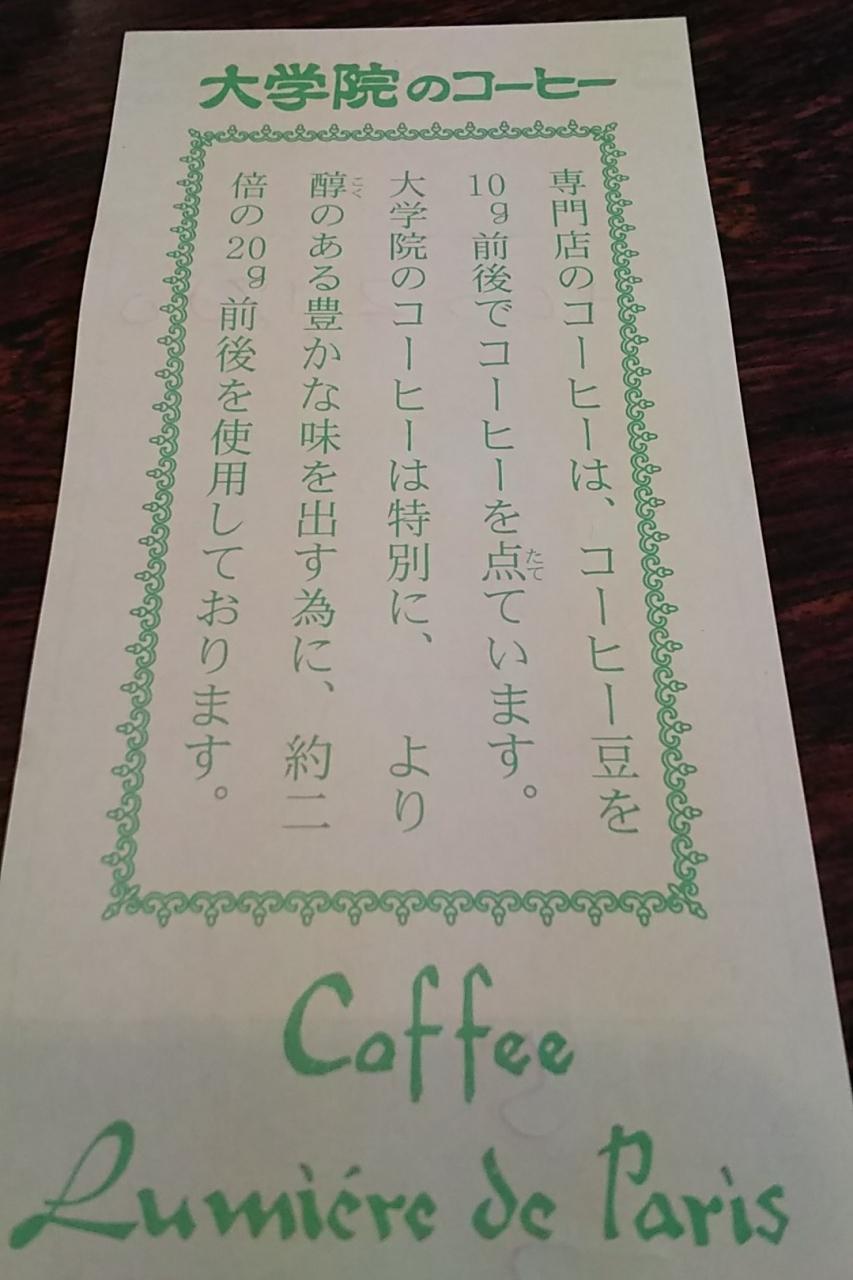 大学院のコーヒー
専門店のコーヒーは、コーヒー豆を
10g前後でコーヒーを点てています。
大学院のコーヒーは特別に、より
醇のある豊かな味を出す為に、約二
倍の20g前後を使用しております。
たて
こく
Coffee
Lumiére de Paris